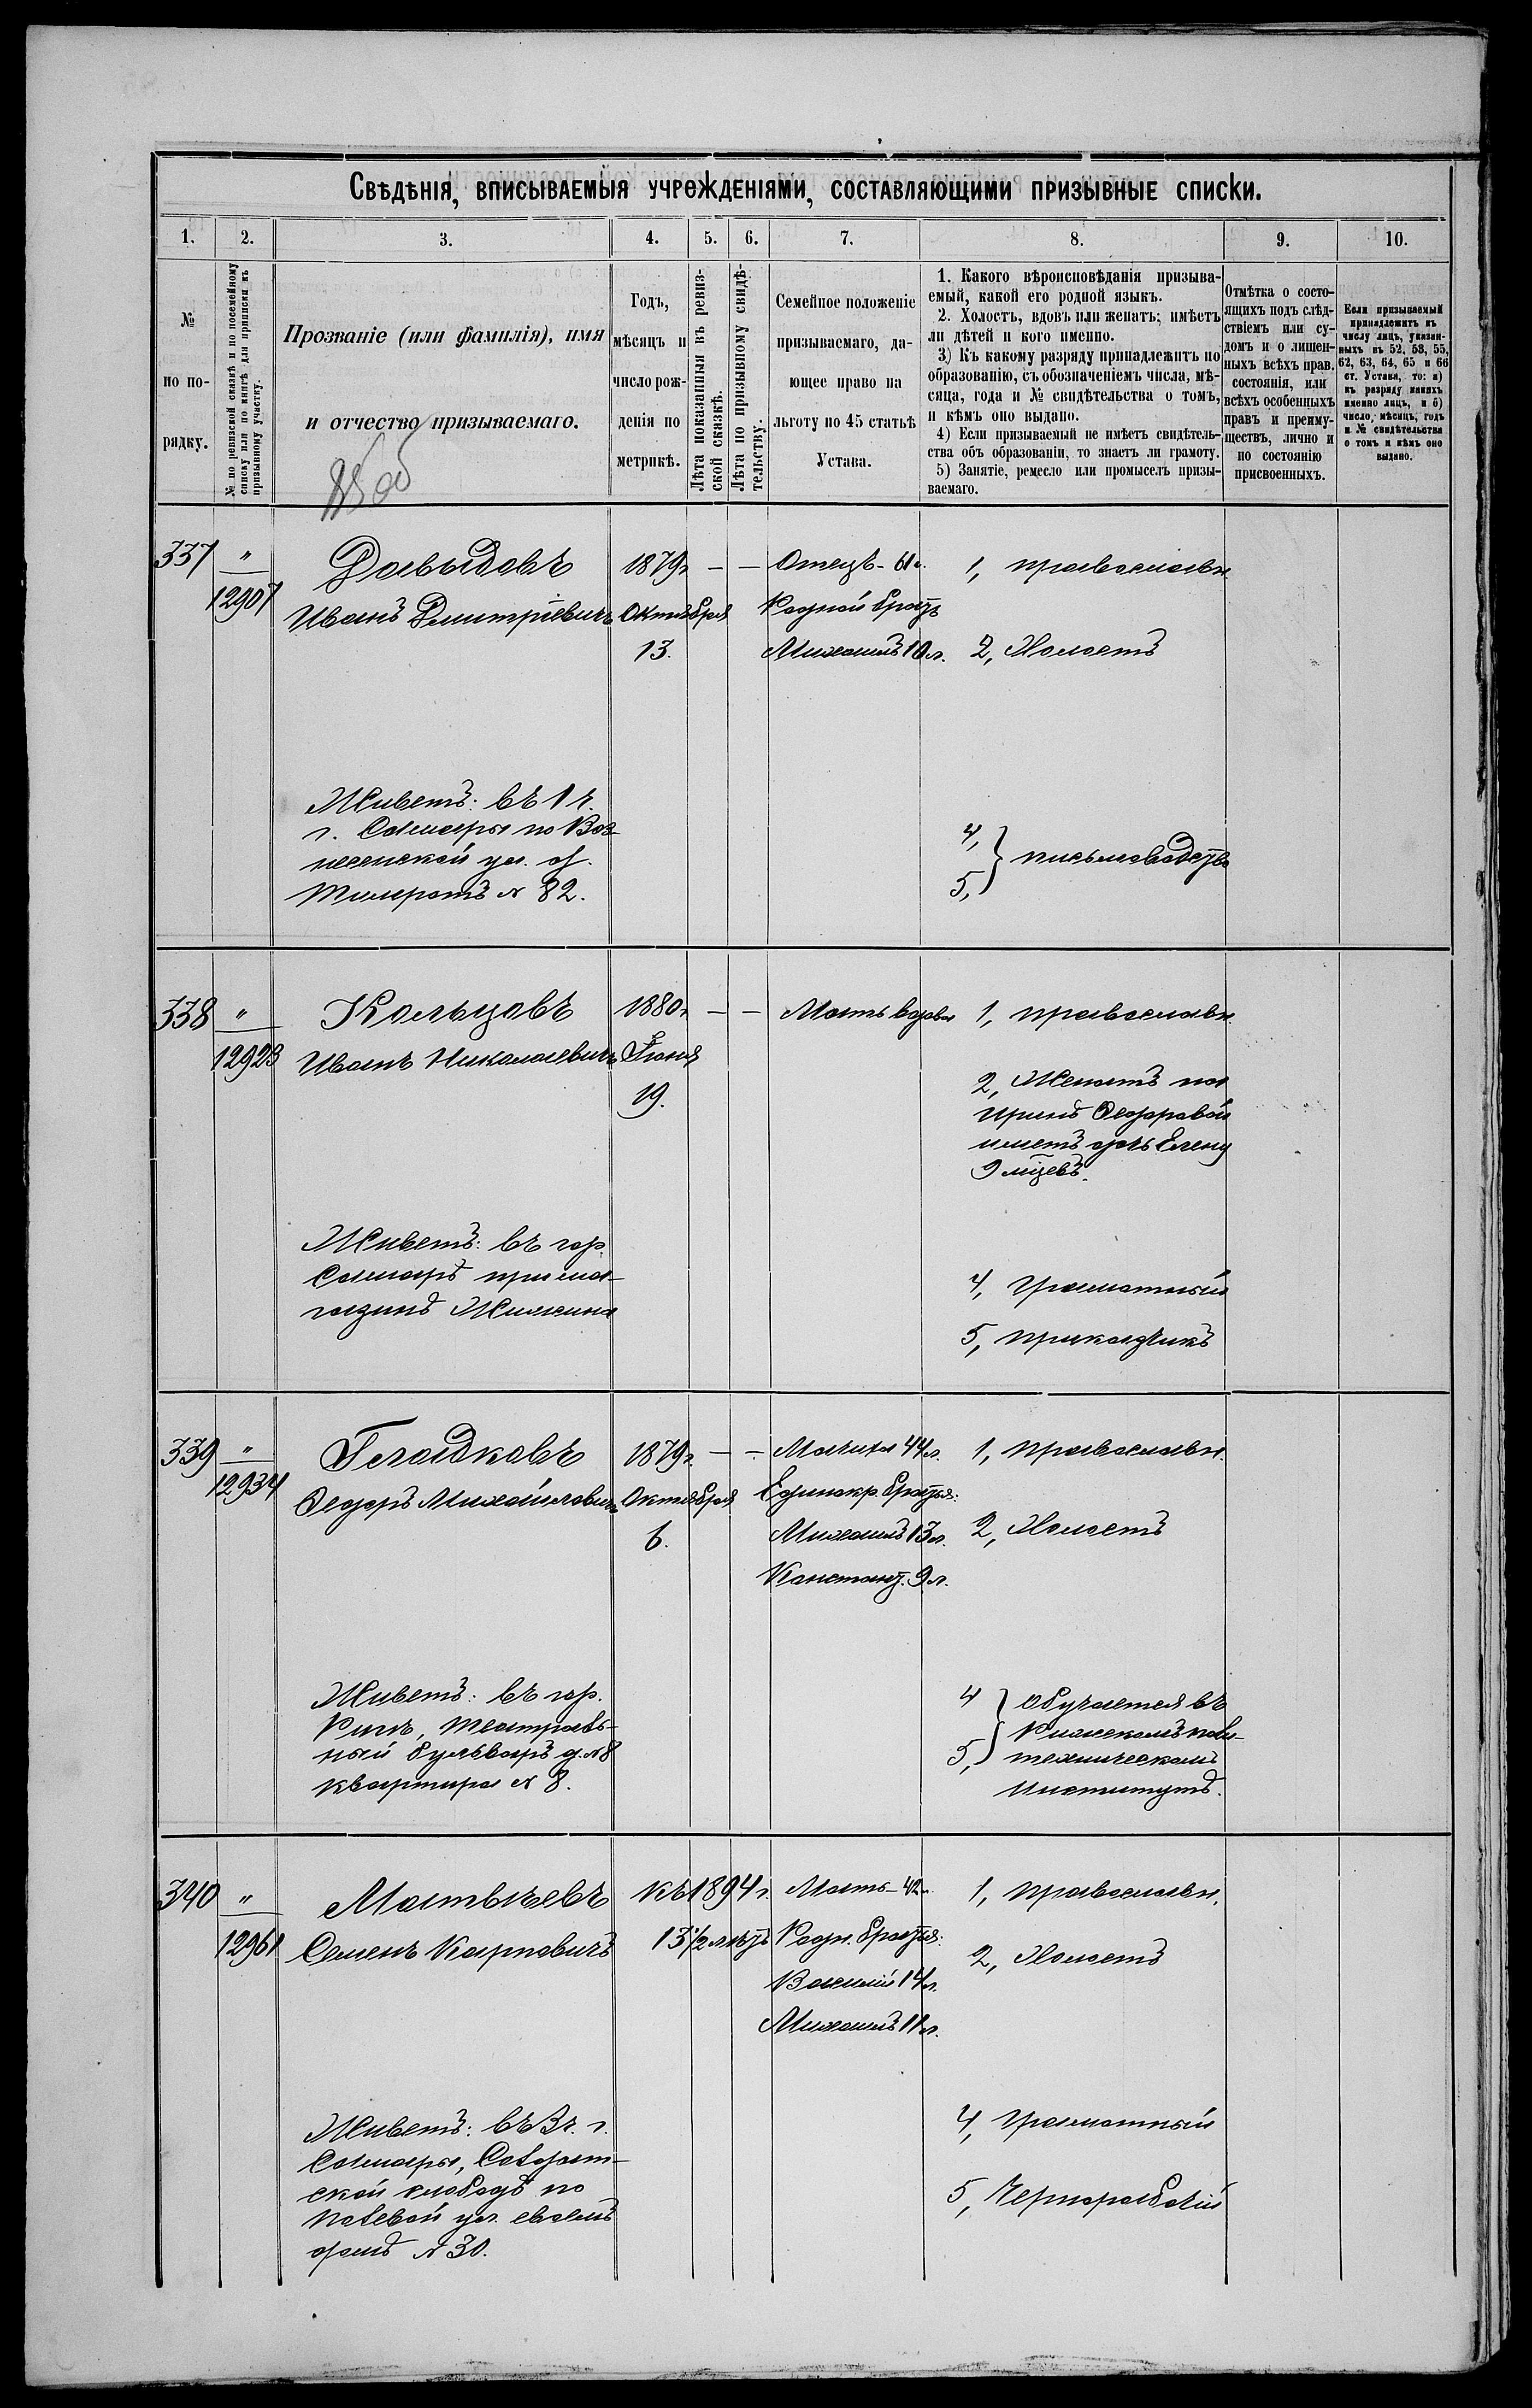 Свѣдѣнія, вписываемыя учрежденіями, составляющими призывные списки.
1. 2. 3. 4. 5. 6. 7. 8. 9. 10.
№
по по-
рядку.
№ по ревизской сказкѣ и по посемейному
списку или по книгѣ для приписки къ
призывному участку.
Прозваніе (или фамилія), имя
и отчество призываемаго.
Годъ,
мѣсяцъ и
число рож-
денія по
метрикѣ.
Лѣта показанныя въ ревиз-
ской сказкѣ.
Лѣта по призывному свидѣ-
тельству.
Семейное положеніе
призываемаго, да-
ющее право на
льготу по 45 статьѣ
Устава.
1. Какого вѣроисповѣданія призыва-
емый, какой его родной языкъ.
2. Холостъ, вдовъ или женатъ; имѣетъ
ли дѣтей и кого именно.
3) Къ какому разряду принадлежитъ по
образованію, съ обозначеніемъ числа, мѣ-
сяца, года и № свидѣтельства о томъ,
и кѣмъ оно выдано.
4) Если призываемый не имѣетъ свидѣтель-
ства объ образованіи, то знаетъ ли грамоту.
5) Занятіе, ремесло или промыселъ призы-
ваемаго.
Отмѣтка о состо-
ящихъ подъ слѣд-
ствіемъ или су-
домъ и о лишен-
ныхъ всѣхъ прав.
состоянія, или
всѣхъ особенныхъ
правъ и преиму-
ществъ, лично и
по состоянію
присвоенныхъ.
Если призываемый
принадлежитъ къ
числу лицъ, указан-
ныхъ въ 52, 53, 55,
62, 63, 64, 65 и 66
ст. Устава, то: а)
къ разряду какихъ
именно лицъ, и б)
число, мѣсяцъ, годъ
и № свидѣтельства
о томъ и кѣмъ оно
выдано.
337 " Давыдовъ 1879г. — — Отецъ - 61г. 1, православн.
12907 Иванъ Дмитріевичъ Октября Родной братъ
13. Михаилъ 10л. 2, Холостъ
Живетъ: въ 1 ч.
г. Самары по Воз-
несенской ул. д.
Тилератъ № 82.
4, } письмоводство
5,
338 " Кольцовъ 1880г. — — Мать вдова 1, православн.
12923 Иванъ Николаевичъ Іюня
19.
2, Женатъ на
Иринѣ Ѳедоровой
имѣетъ дочь Елену
9 мѣцевъ.
Живетъ: въ гор.
Самарѣ при ма-
газинѣ Жилкина
4, Грамотный
5, приказчикъ
339 " Гладковъ 1879г. — — Мачиха 44л. 1, православн.
12934 Ѳедоръ Михайловичъ Октября Единокр. братья:
6. Михаилъ 13л. 2, Холостъ
Констант. 9л.
Живетъ: въ гор.
Ригѣ, Театраль-
ный бульваръ д. № 8
квартира № 8.
4 } обучается въ
5, Рижскомъ поли-
техническомъ
институтѣ.
340 " Матвѣевъ къ 1894г. Мать - 42г. 1, православн.
12961 Семенъ Карповичъ 13½ лѣтъ Родн. братья:
Василій 14л. 2, Холостъ
Михаилъ 11л.
Живетъ: въ 3ч. г.
Самары, Солдат-
ской слободѣ по
Полевой ул. своемъ
домѣ № 30.
4, Грамотный
5, Чернорабочій